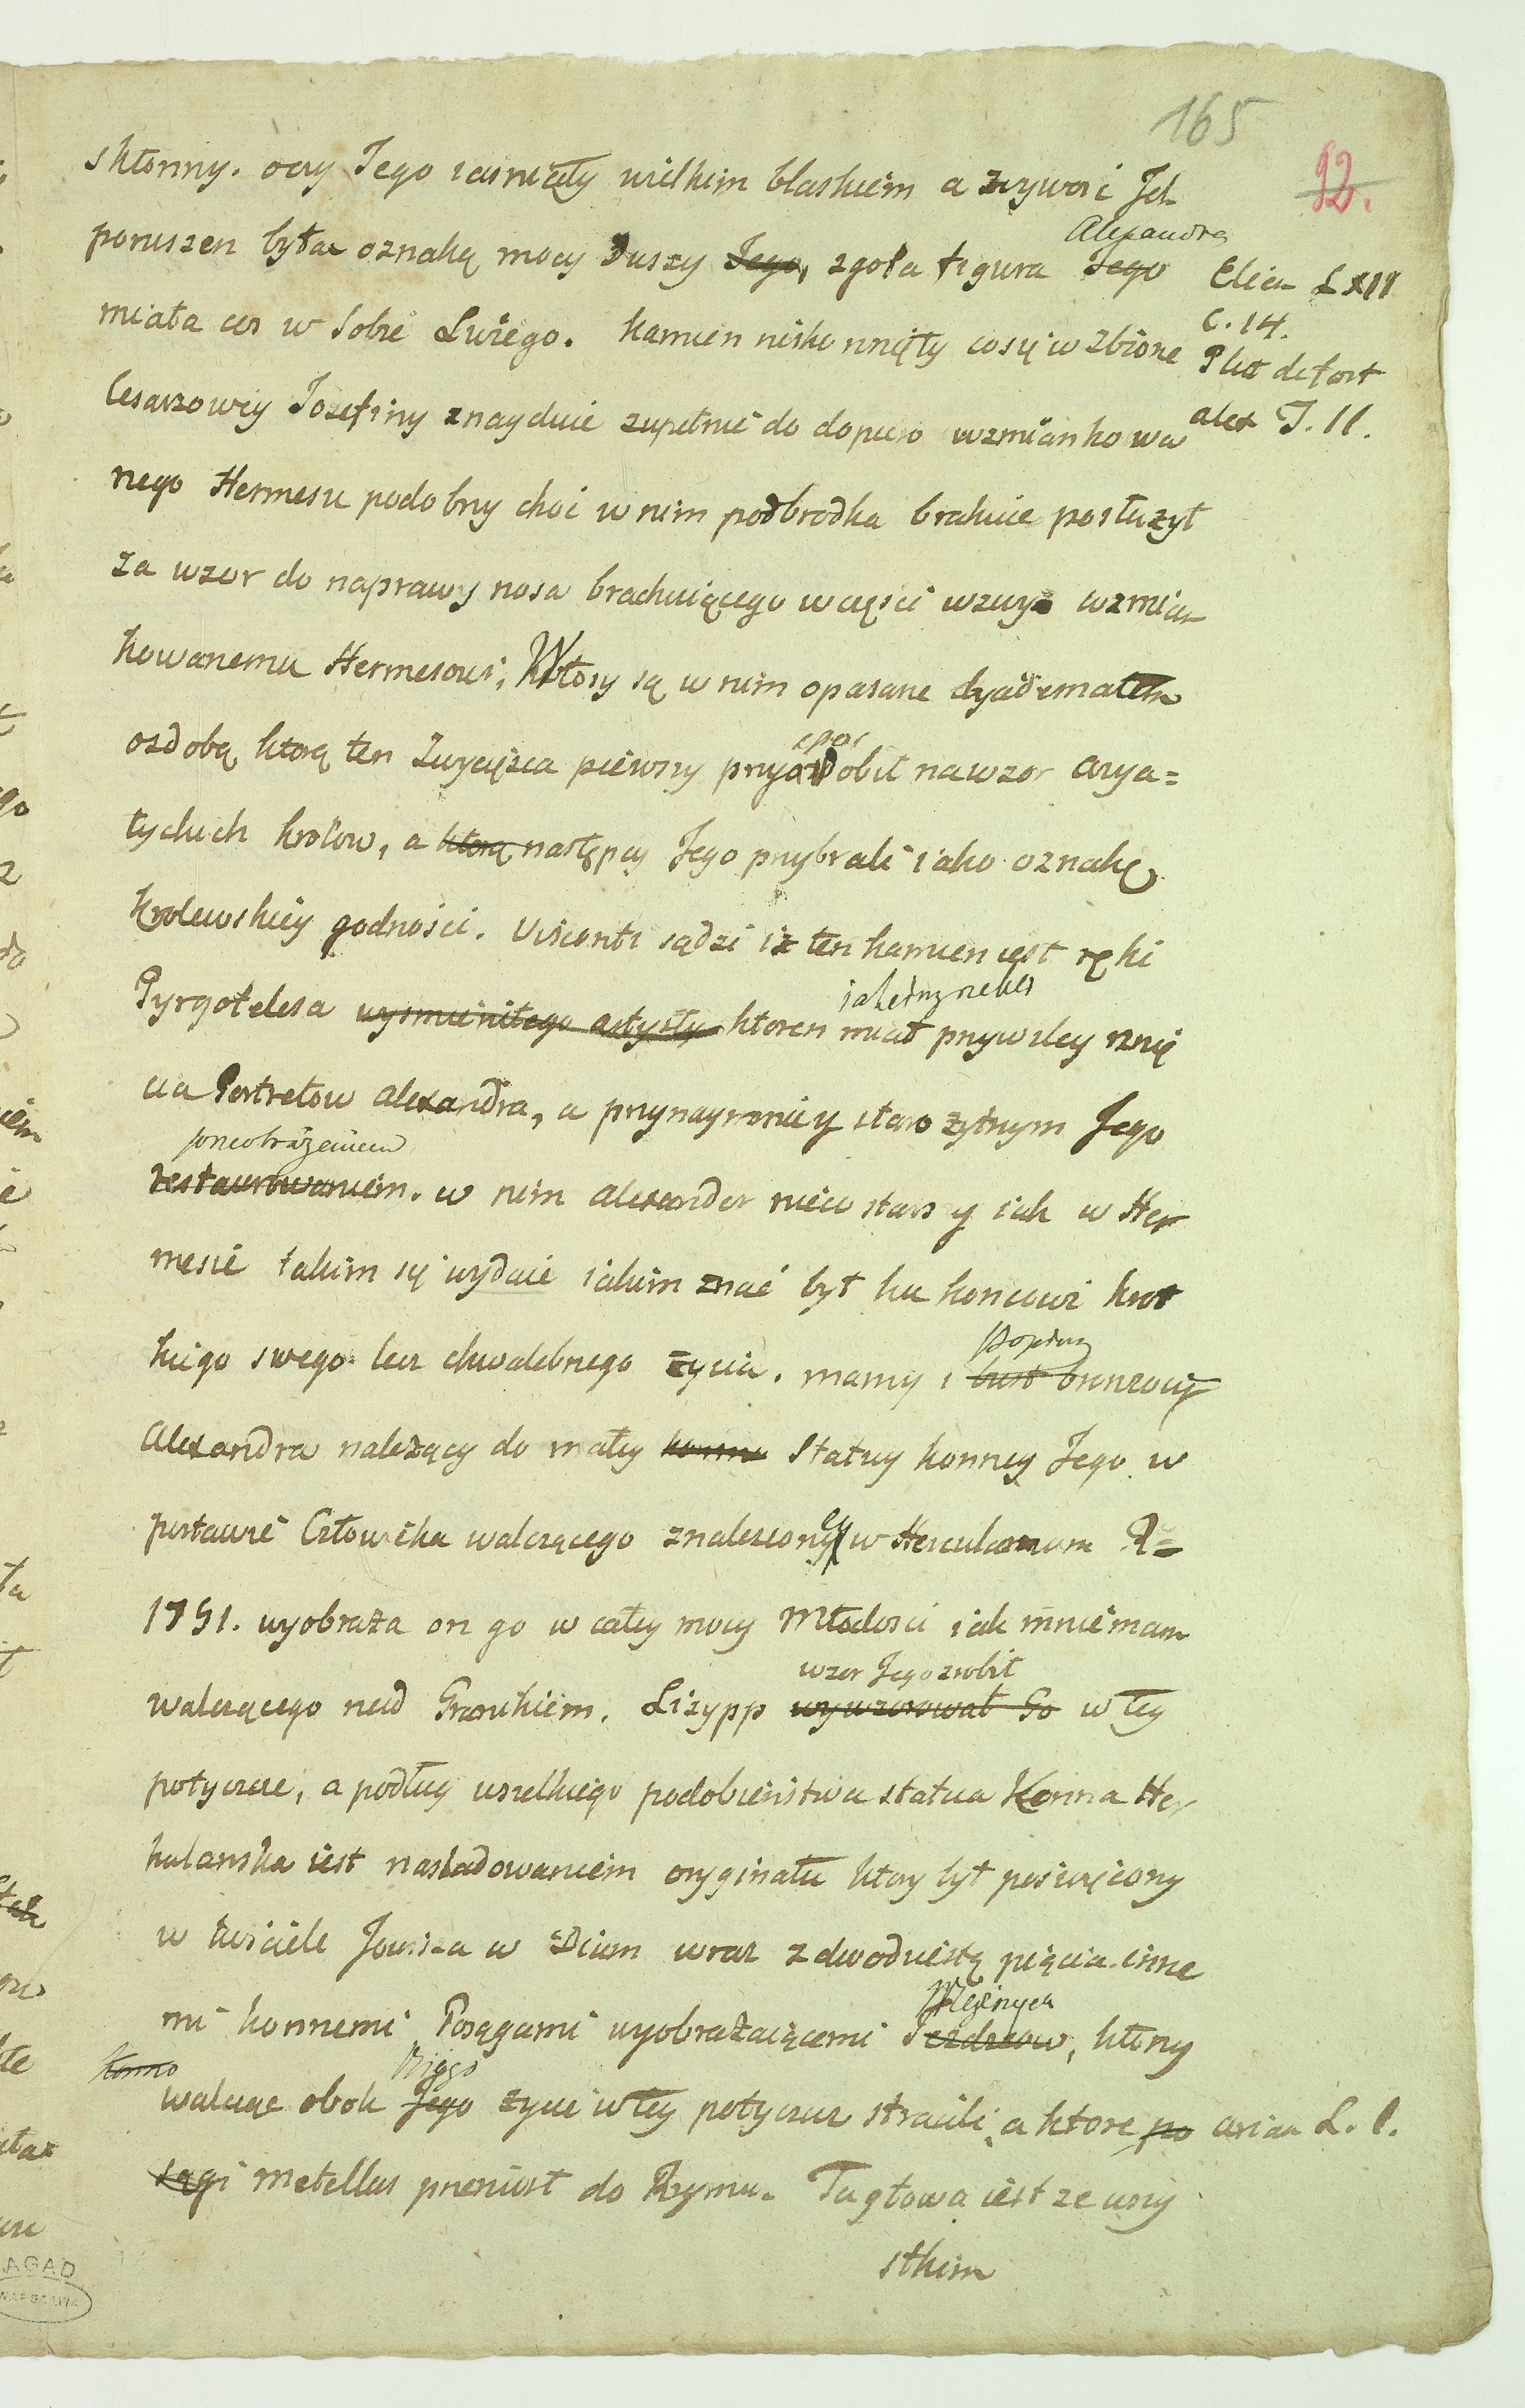 165
92.
skłonny. oczy Jego iasniały wielkim blaskiem a żywość Jch
poruszen była oznaką mocy Duszy Jego, zgoła figura Jego
Alexandra
Elien L XII
c. 14.
Plut de fort
alex T. II.
miała cos w Sobie Lwiego. Kamien nisko rznięty co się w zbiorze
Cesarzowey Jozefiny znayduie zupełnie do dopiero wzmiankowa
nego Hermesu podobny choć w nim podbrodka brakuie posłużył
za wzor do naprawy nosa brakuiącego w części wzwyż wzmian
kowanemu Hermesowi, Włosy są w nim opasane dyadematem
ozdobą ktorą ten Zwycięzca pierwszy przyozdobił na wzor Azya=
tyckich krolow, a ktorą następcy Jego przybrali iako oznakę
Krolewskiey godności. Visconti sądzi iż ten kamien iest ręki
Pyrgotelesa wysmienitego artysty ktoren miał przywiley rznię
cia Portretow Alexandra, a przynaymniey starożytnym Jego
przeobrażeniem
restaurowaniem. w nim Alexander nieco starszy iak w Her
mesie takim się wydaie iakim znać był ku koncowi krot
kiego swego lecz chwalebnego życia. mamy i bust bronzowy
Popiersie
Alexandra należący do małey konno Statuy konney Jego w
postawie Człowieka walczącego znalezioney w Herculanum R=
1751. wyobraża on go w całey mocy Młodosci iak mniemam
walczącego nad Granikiem. Lizypp wywzorował Go w tey
wzor Jego zrobił
potyczce, a podług wszelkiego podobieństwa statua Konna Her
kulanska iest nasladowaniem oryginału ktory był poswięcony
w kosciele Jowisza w Dium wraz z dwodziestą pięcia inne
mi konnemi Posągami wyobrażaiącemi Jezdzcow, ktorzy
Konno
walcząc obok Jego życie w tey potyczce stracili, a ktore po
Arian L. I.
sągi Metellus przeniost do Rzymu. Ta głowa iest ze wszy
stkim
AGAD
WARSZAWA